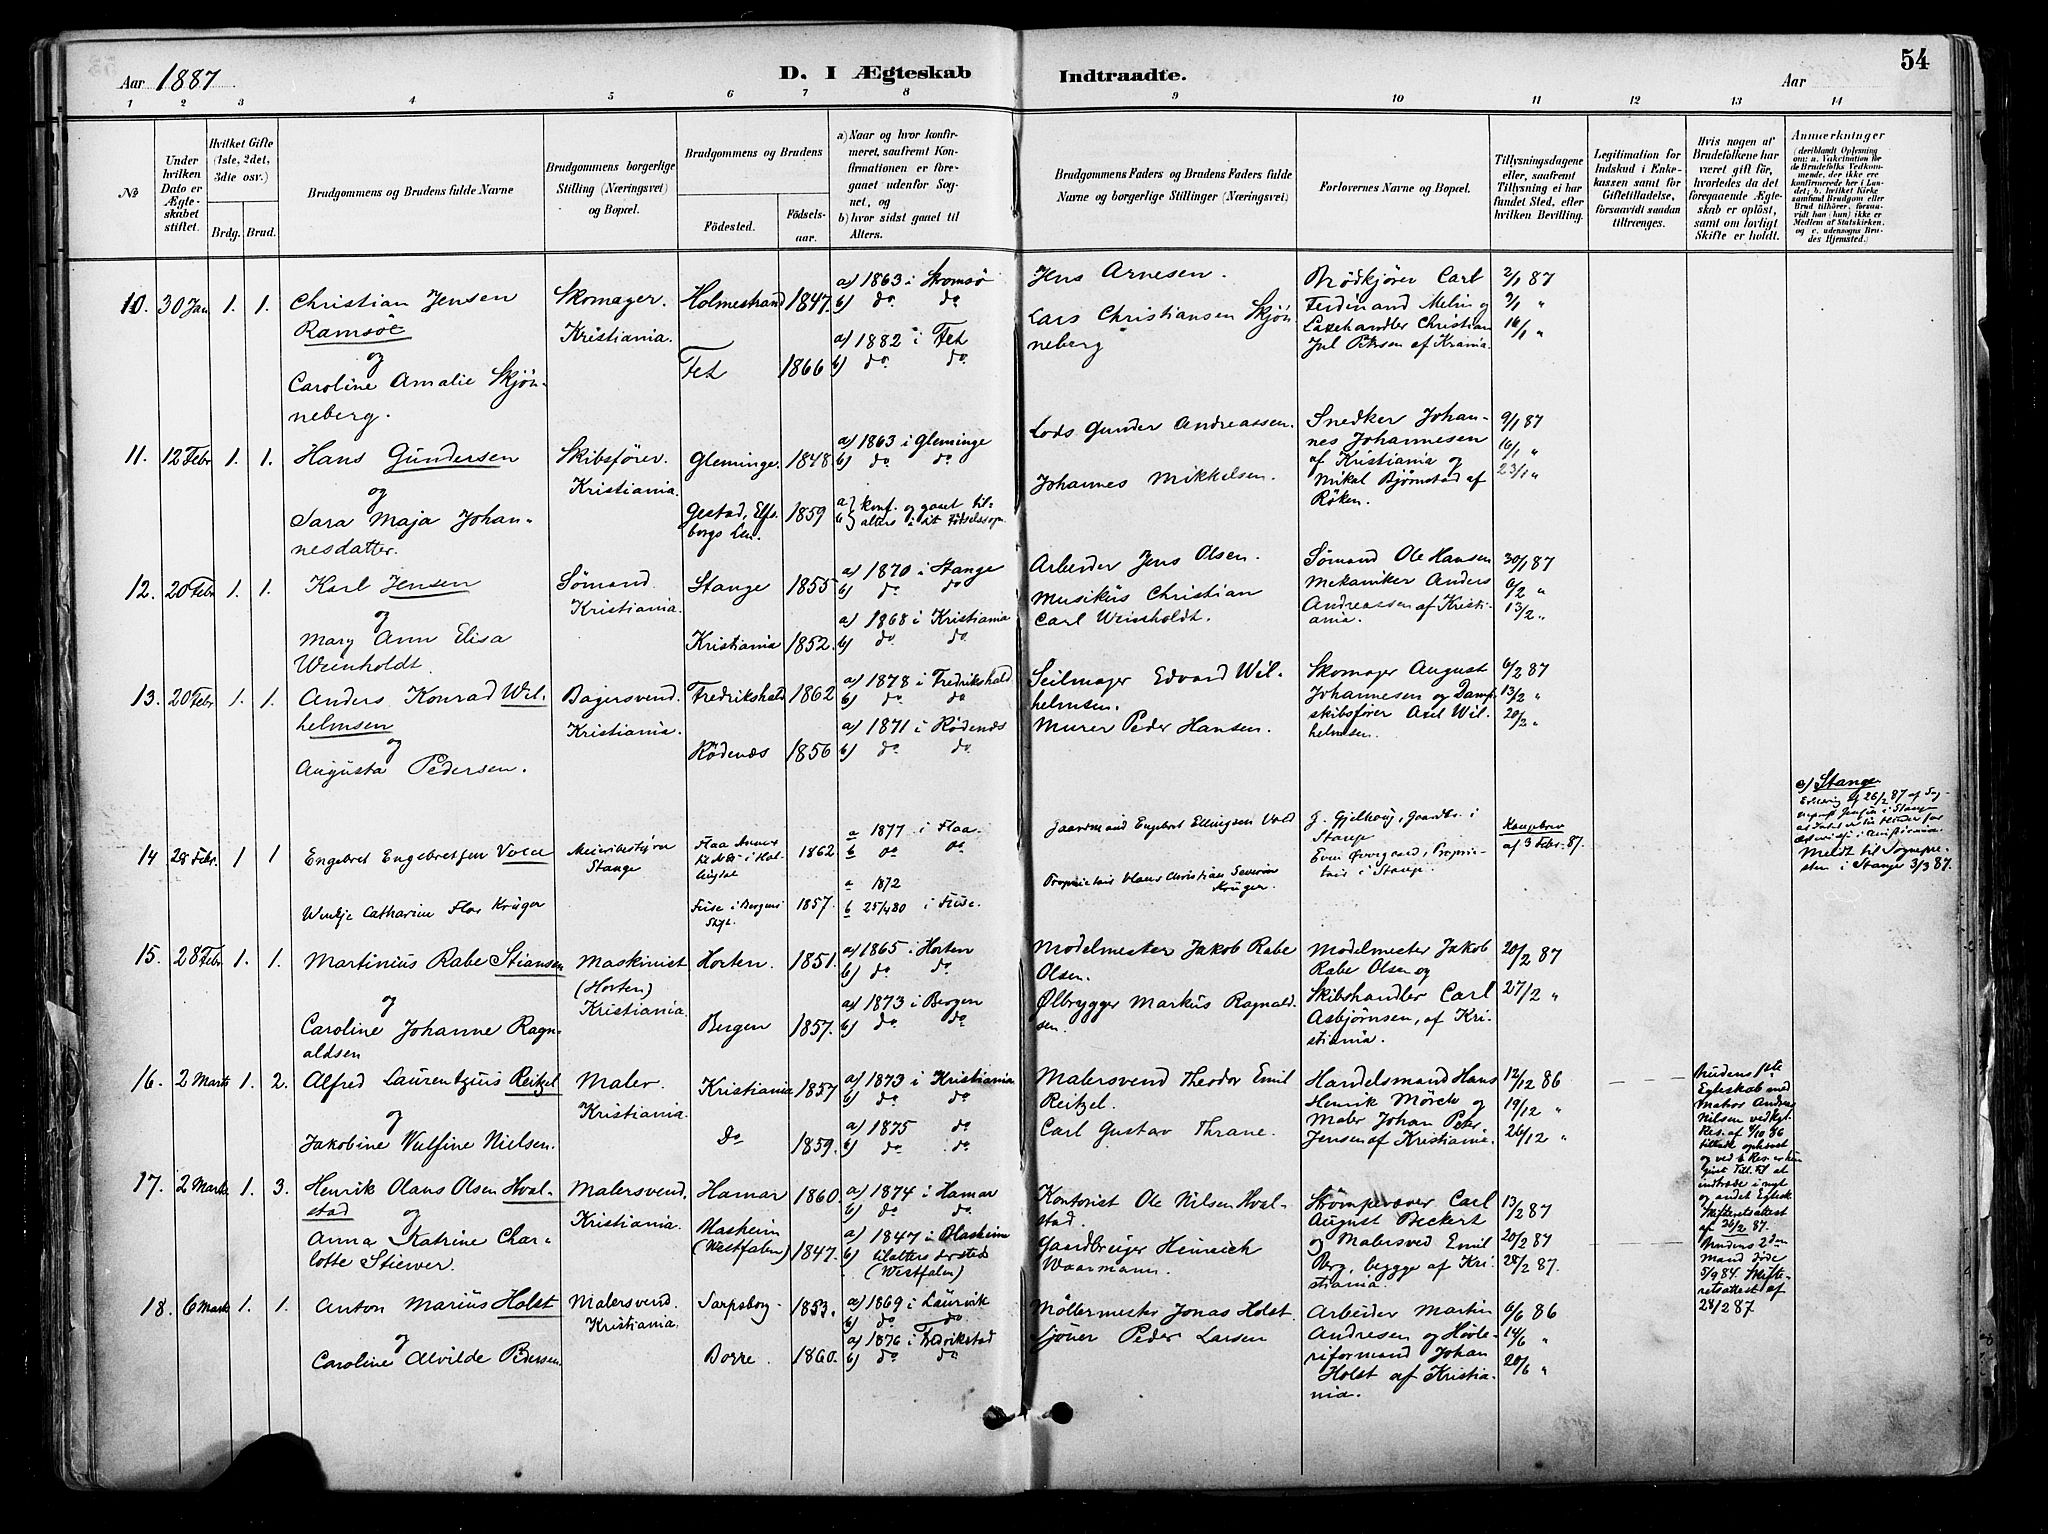 54
Aar 1887
D. I Ægteskab Indtraadte.
Aar
1 2 3 4 5 6 7 8 9 10 11 12 13 14
No
Under hvilken Dato er Ægteskabet stiftet.
Hvilket Gifte (1ste, 2det, 3die osv.)
Brdg. Brud.
Brudgommens og Brudens fulde Navne
Brudgommens borgerlige Stilling (Næringsvei) og Bopæl.
Brudgommens og Brudens
Fødested.
Fødselsaar.
a) Naar og hvor konfirmeret, saafremt Konfirmationen er foregaaet udenfor Sognet, og
b) hvor sidst gaaet til Alters.
Brudgommens Faders og Brudens Faders fulde Navne og borgerlige Stillinger (Næringsvei)
Forlovernes Navne og Bopæl.
Tillysningsdagene eller, saafremt Tillysning ei har fundet Sted, efter hvilken Bevilling.
Legitimation for Indskud i Enkekassen samt for Giftetilladelse, forsaavidt saadan tiltrænges.
Hvis nogen af Brudefolkene har været gift før, hvorledes da det foregaaende Ægteskab er opløst, samt om lovligt Skifte er holdt.
Anmærkninger
(deriblandt Oplysning om: a. Vakcination for de Brudefolks Vedkommende, der ikke ere konfirmerede her i Landet; b. hvilket Kirkesamfund Brudgom eller Brud tilhører, forsaavidt han (hun) ikke er Medlem af Statskirken, og c. udensogns Brudes Hjemsted.)
10. 30 Jan 1. 1. Christian Jensen Ramsöe
og
Caroline Amalie Skjönneberg.
Skomager. Kristiania.
Holmestrand 1847.
Fet 1866
a) 1863 i Stromsö
b) do do
a) 1882 i Fet
b) do do
Jens Arnesen.
Lars Christiansen Skjönneberg
Brödkjörer Carl Ferdinand Melin og Laxehandler Christian Jul Petersen af Krania.
2/1 87
9/1 "
16/1 "
11. 12 Febr 1. 1. Hans Gundersen
og
Sara Maja Johannesdatter.
Skibsförer. Kristiania.
Gleminge. 1848
Gestad, Elfsborgs Len. 1859
a) 1863 i Gleminge
b) do do
a} konf. og gaaet til
b} alters i sit Fødselssogn
Lods Gunder Andreassen.
Johannes Mikkelsen.
Snedker Johannes Johannesen af Kristiania og Mikal Bjørnstad af Röken.
9/1 87
16/1 "
23/1 "
12. 20 Febr 1. 1. Karl Jensen
og
Mary Ann Elisa Weinholdt.
Sömand. Kristiania.
Stange 1855
Kristiania 1852.
a) 1870 i Stange
b) do do
a) 1868 i Kristiania
b) do do
Arbeider Jens Olsen.
Musikus Christian Carl Weinholdt.
Sömand Ole Hansen
Mekaniker Anders Andreassen af Kristiania.
30/1 87
6/2 "
13/2 "
13. 20 Febr 1. 1. Anders Konrad Wilhelmsen
og
Augusta Pedersen.
Bagersvend. Kristiania.
Fredrikshald 1862
Rödenæs 1856
a) 1878 i Fredrikshald
b) do do
a) 1871 i Rödenæs
b) do do
Seilmager Edvard Wilhelmsen.
Murer Peder Hansen.
Skomager August Johannesen og Dampskibsförer Axel Wilhelmsen.
6/2 87
13/2 "
20/2 "
14 28 Febr. 1 1 Engebret Engebretsen Vold
Wenkje Catharine Flor Krüger
Meieribestyrer Stange
Flaa
1862
Fuse i Bergens Stift. 1857.
a 1877 i Flaa.
b do do
a 1872
b 25/4 80 i Fuse.
Gaardmand Engebret Ellingsen Vold
Proprietair Claus Christian Severin Krüger.
G. Gjelhoug, Gaardbr. i Stange
Even Övergaard, Proprietair i Stange.
Kongebrev af 3 Febr. 87.
c) Stange
Meldt til Sognepresten i Stange 3/3 87.
15. 28 Febr 1. 1. Martinius Rabe Stiansen
og
Caroline Johanne Ragnaldsen
Maskinist (Horten) Kristiania.
Horten. 1851.
Bergen 1857.
a) 1865 i Horten
b) do do
a) 1873 i Bergen
b) do do
Modelmester Jakob Rabe Olsen.
Ølbrygger Markus Ragnaldsen.
Modelmester Jakob Rabe Olsen og Skibshandler Carl Asbjørnsen, af Kristiania.
20/2 87
27/2 "
16. 2 Marts 1. 2. Alfred Laurentzius Reitzel
og
Jakobine Valfine Nielsen.
Maler. Kristiania.
Kristiania 1857
do 1859.
a) 1873 i Kristiania
b) do do
a) 1875 do
b) do do
Malersvend Theodor Emil Reitzel.
Carl Gustav Thrane.
Handelsmand Hans Henrik Mörch og Maler Johan Peter Jensen af Kristiania.
12/12 86
19/12 "
26/12 "
Brudens 1ste Egteskab med Matros Andreas Nilsen ved Kgl. Res. af 4/10 86 tilladt ophævet og ved s. Res. er hun givet Till. til at indtræde i nyt og andet Egtesk. Skifteretsattest af 26/2 87.
17. 2 Marts 1. 3. Henrik Olaus Olsen Hvalstad
og
Anna Katrine Charlotte Stiewer.
Malersvend. Kristiania.
Hamar 1860.
Blasheim (Westfalen) 1847.
a) 1874 i Hamar
b) do do
a) 1847 i Blasheim
b) tilalters dersteds (Westfalen)
Kontorist Ole Nilsen Hvalstad.
Gaardbruger Heinrich Waarmann.
Strömpevæver Carl August Beckert og Malersved Emil Berg, begge af Kristiania.
13/2 87
20/2 87
28/2 87.
Brudens 2den Mand döde 5/9 84. Skifteretsattest af 28/2 87
18. 6 Marts 1. 1. Anton Marius Holst
og
Caroline Alvilde Pedersen
Malersvend. Kristiania.
Sarpsborg. 1853.
Borre. 1860.
a) 1869 i Laurvik
b) do do
a) 1876 i Fredrikstad
b) do do
Möllermester Jonas Holst.
Sjöuer Peder Larsen
Arbeider Martin Andresen og Hövleriformand Johan Holst af Kristiania.
6/6 86
14/6 "
20/6 "